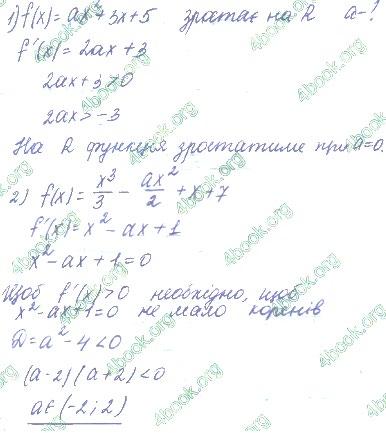 1) f(x) = ax² + 3x + 5 зростає на R a - ?
f'(x) = 2ax + 3
2ax + 3 > 0
2ax > -3
На R функція зростатиме при a = 0.
2) f(x) = x³/3 - ax²/2 + x + 7
f'(x) = x² - ax + 1
x² - ax + 1 = 0
Щоб f'(x) > 0 необхідно, щоб
x² - ax + 1 = 0 не мало коренів
D = a² - 4 < 0
(a - 2)(a + 2) < 0
a ∈ (-2; 2)